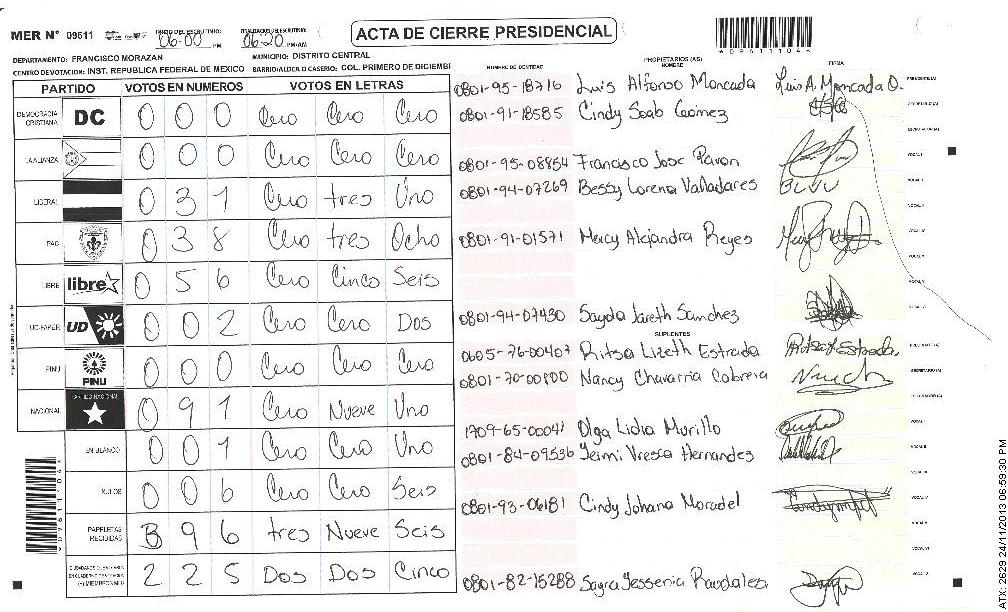 MER Nº 09611 06-00 PM 06-20 PM/AM ACTA DE CIERRE PRESIDENCIAL
DEPARTAMENTO: FRANCISCO MORAZAN MUNICIPIO: DISTRITO CENTRAL
CENTRO DE VOTACION: INST. REPUBLICA FEDERAL DE MEXICO BARRIO/ALDEA O CASERIO: COL. PRIMERO DE DICIEMBRE
PARTIDO VOTOS EN NUMEROS VOTOS EN LETRAS
NUMERO DE IDENTIDAD PROPIETARIOS (AS) NOMBRE FIRMA
DEMOCRACIA CRISTIANA DC 0 0 0 Cero Cero Cero
LA ALIANZA 0 0 0 Cero Cero Cero
LIBERAL 0 3 1 Cero tres Uno
PAC 0 3 8 Cero tres Ocho
LIBRE libre 0 5 6 Cero Cinco Seis
UD-FAPER UD 0 0 2 Cero Cero Dos
PINU PINU 0 0 0 Cero Cero Cero
NACIONAL PARTIDO NACIONAL 0 9 1 Cero Nueve Uno
EN BLANCO 0 0 1 Cero Cero Uno
NULOS 0 0 6 Cero Cero Seis
PAPELETAS RECIBIDAS 3 9 6 tres Nueve Seis
2 2 5 Dos Dos Cinco
0801-95-18716 Luis Alfonso Moncada Luis A. Moncada O. PRESIDENTE (A)
0801-91-18585 Cindy Soab Gomez SECRETARIO (A)
ESCRUTADOR (A)
0801-95-08854 Francisco Jose Pavon VOCAL I
0801-94-07269 Bessy Lorena Valladares VOCAL II
VOCAL III
0801-91-01571 Mercy Alejandra Reyes VOCAL IV
VOCAL V
VOCAL VI
0801-94-07430 Sayda Jareth Sanchez
SUPLENTES
0605-76-00407 Ritsa Lizeth Estrada Ritsa Estrada PRESIDENTE (A)
0801-70-00800 Nancy Chavarria Cabrera SECRETARIO (A)
ESCRUTADOR (A)
1709-65-00041 Olga Lidia Murillo VOCAL I
0801-84-09536 Jeimi Vresca Hernandes VOCAL II
VOCAL III
0801-93-06181 Cindy Johana Moradel VOCAL IV
VOCAL V
VOCAL VI
0801-82-15288 Sayra Jessenia Raudales
ATX 2629 24/11/2013 06:59:30 PM